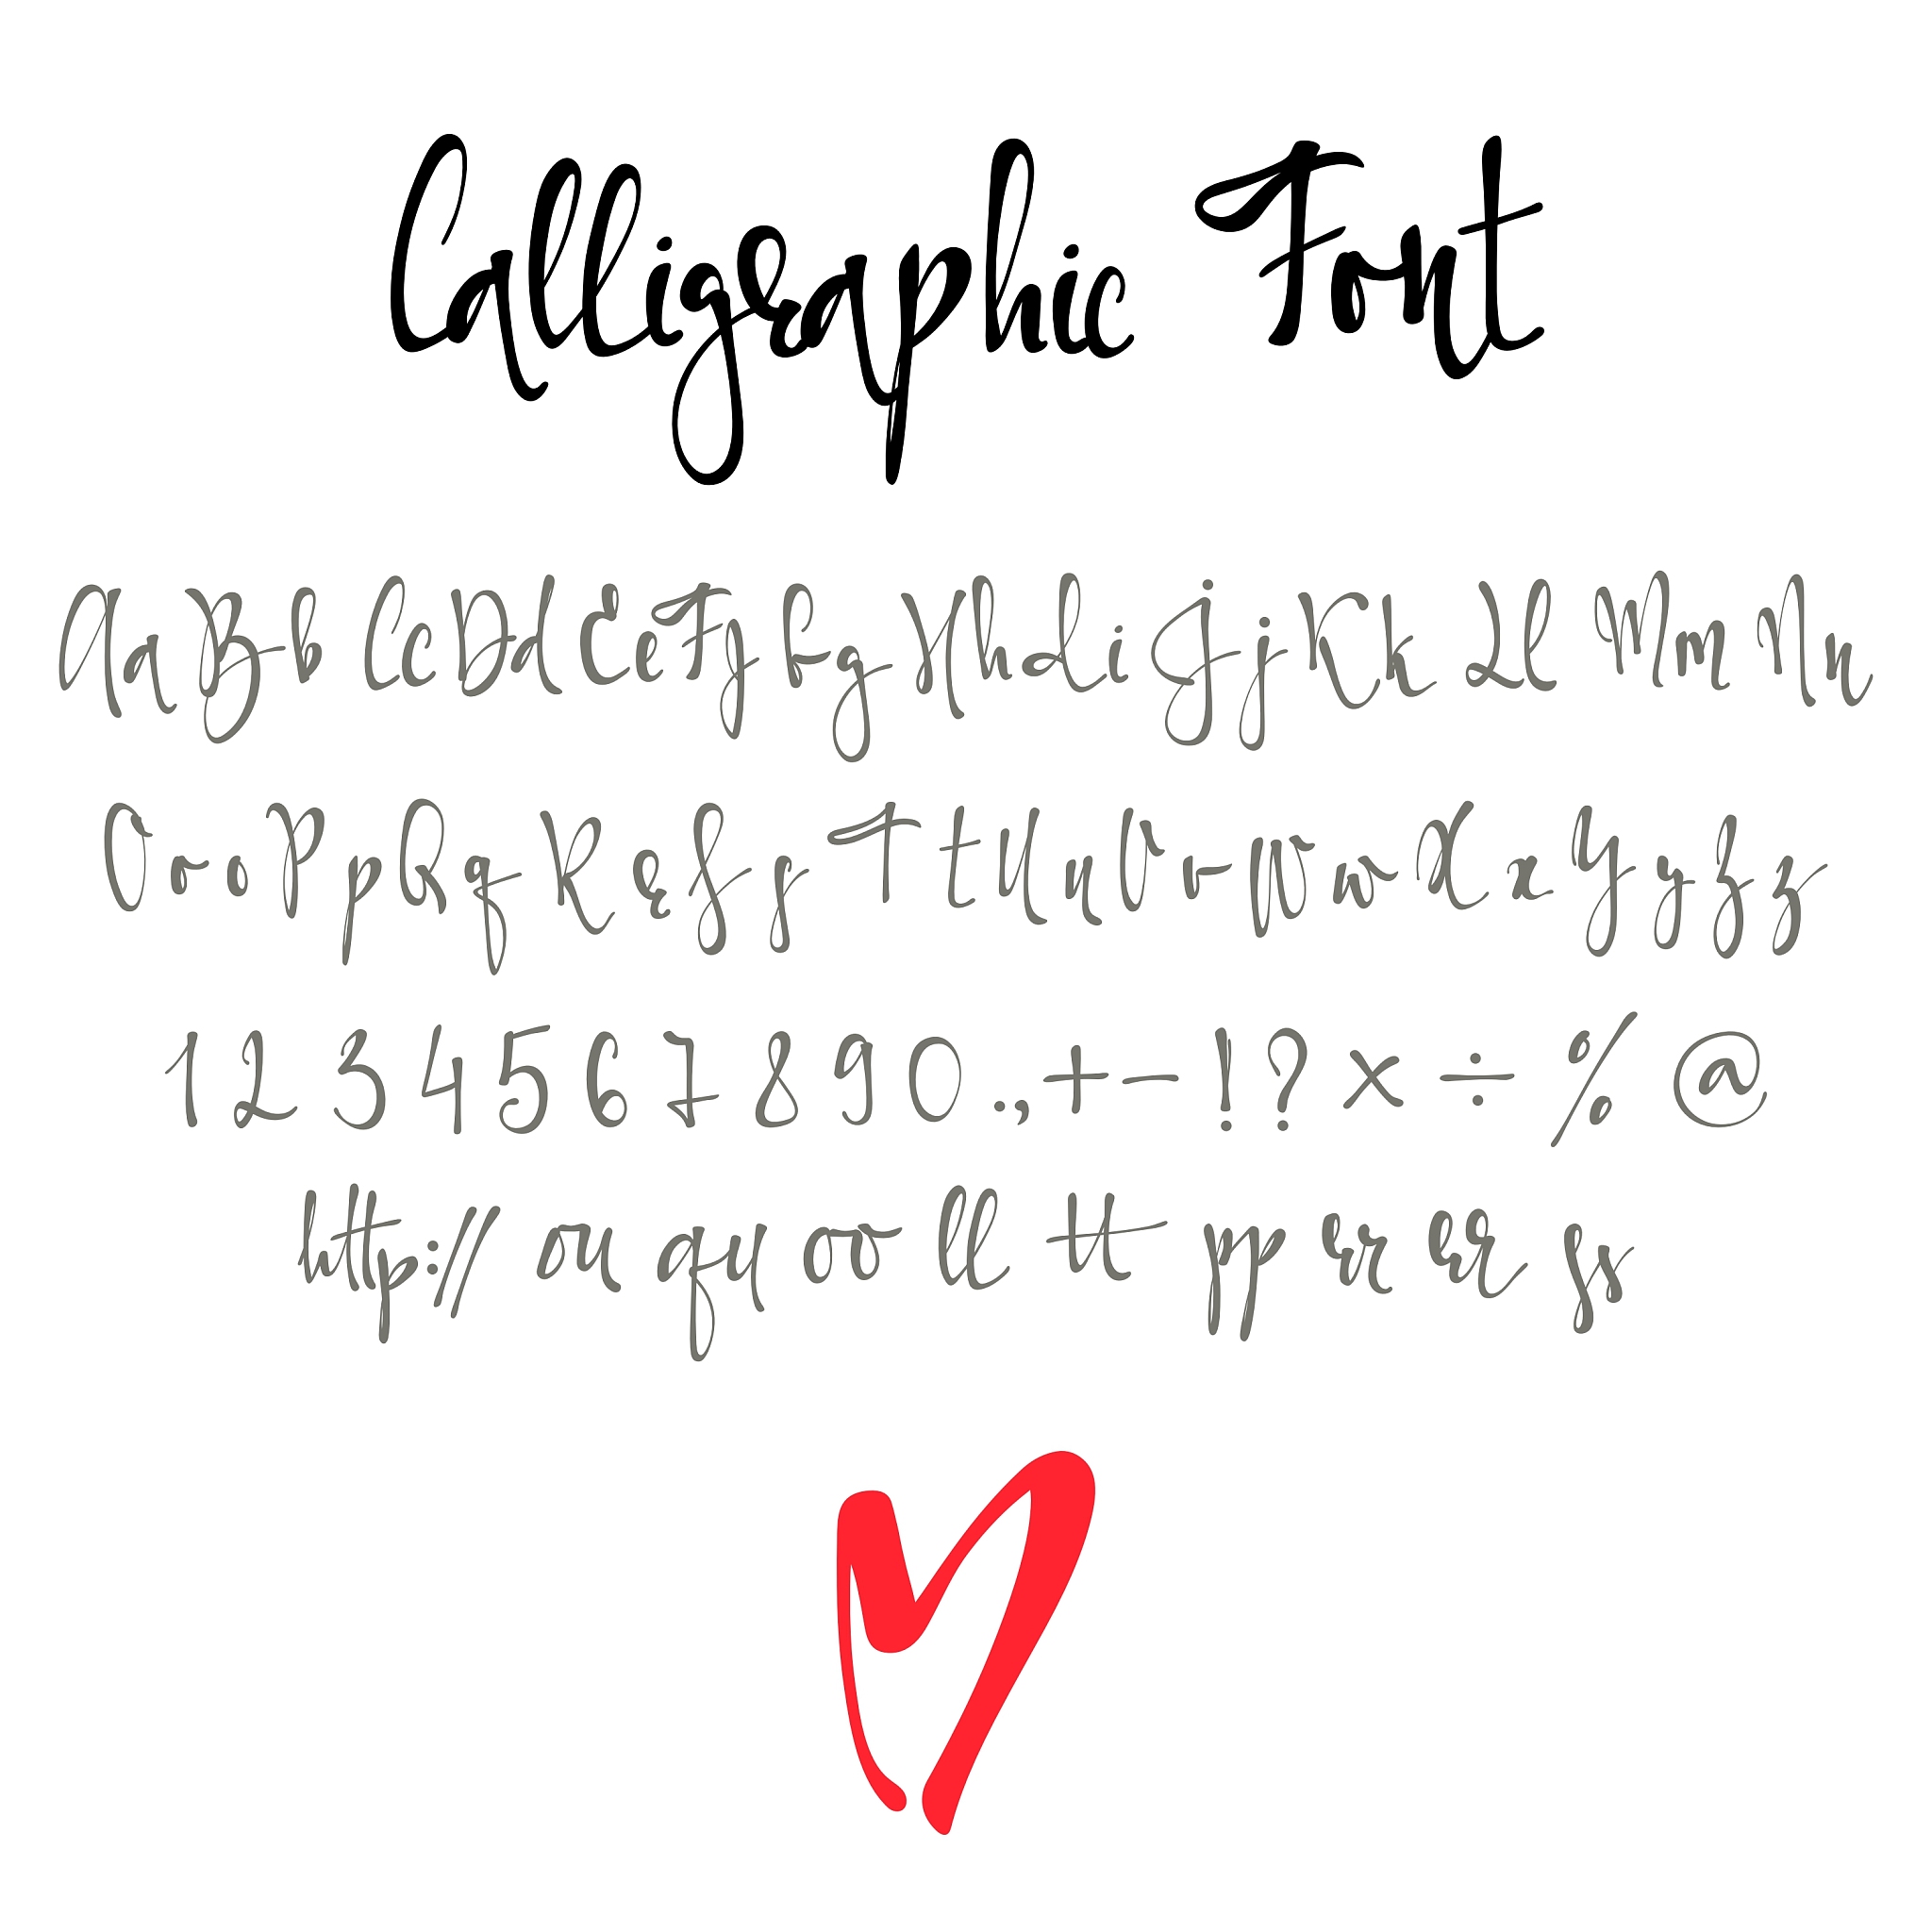 Calligraphic Font
Aa Bb Cc Dd Ee Ff Gg Hh Ii Jj Kk Ll Mm Nn
Ooo Pp Qq Rr Ss Tt Uu Vv Ww Xx Yy Zz
1 2 3 4 5 6 7 8 9 0 . , + - ! ? × ÷ % @
http:// on qu oo ll tt pp rr rr ss